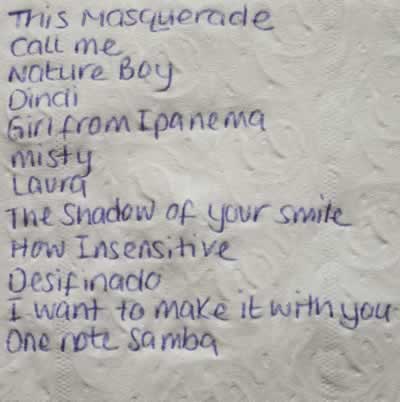 This Masquerade
Call me
Nature Boy
Dindi
Girl from Ipanema
Misty
Laura
The Shadow of your smile
How Insensitive
Desifinado
I want to make it with you
One note Samba